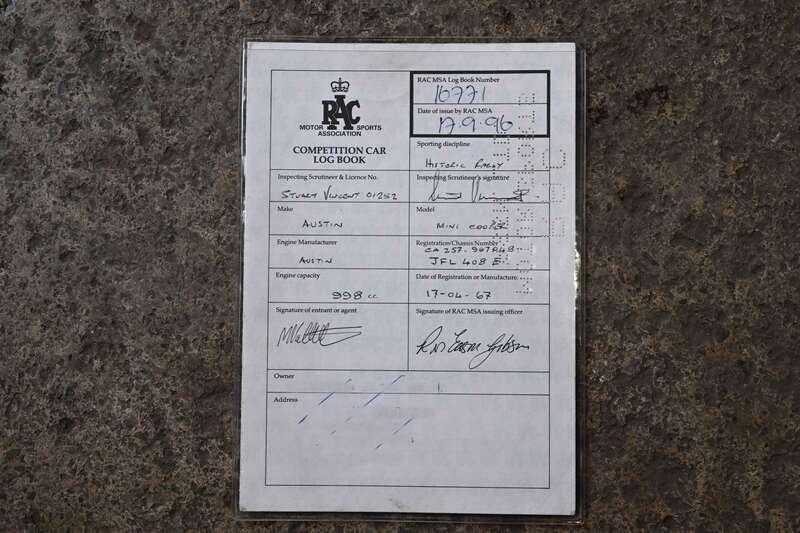 RAC
MOTOR SPORTS
ASSOCIATION
COMPETITION CAR
LOG BOOK
RAC MSA Log Book Number
16771
Date of issue by RAC MSA
17.9.96
Sporting discipline
HISTORIC RALLY
Inspecting Scrutineer & Licence No.
STUART VINCENT 01252
Inspecting Scrutineer's signature
Make
AUSTIN
Model
MINI COOPER
Engine Manufacturer
AUSTIN
Registration/Chassis Number
JFL 408 E
Engine capacity
998 cc
Date of Registration or Manufacture
17-04-67
Signature of entrant or agent
Signature of RAC MSA issuing officer
Owner
Address